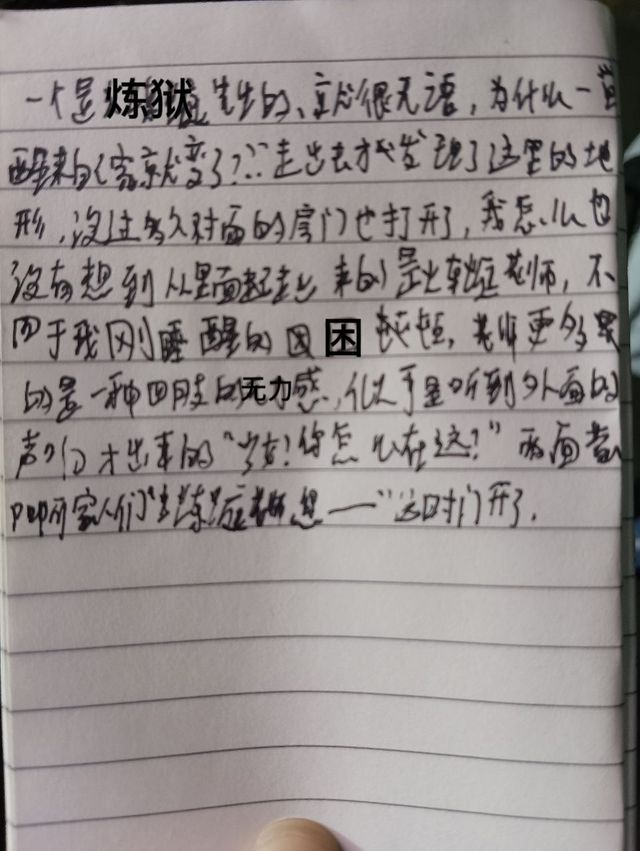 一个是炼狱 先生的、就很无语，为什么一
醒来自家就变了？走出去才发现了这里的地
形，没过多久对面的房门也打开了，我怎么也
没有想到从里面走出来的是 老师，不
同于我刚睡醒的困 困 ，老师更多
的是一种四肢的无力感， 是听到外面的
声 才出来的“ ！你怎么在这？”两面
啊家人们” 老师想——”这时门开了.